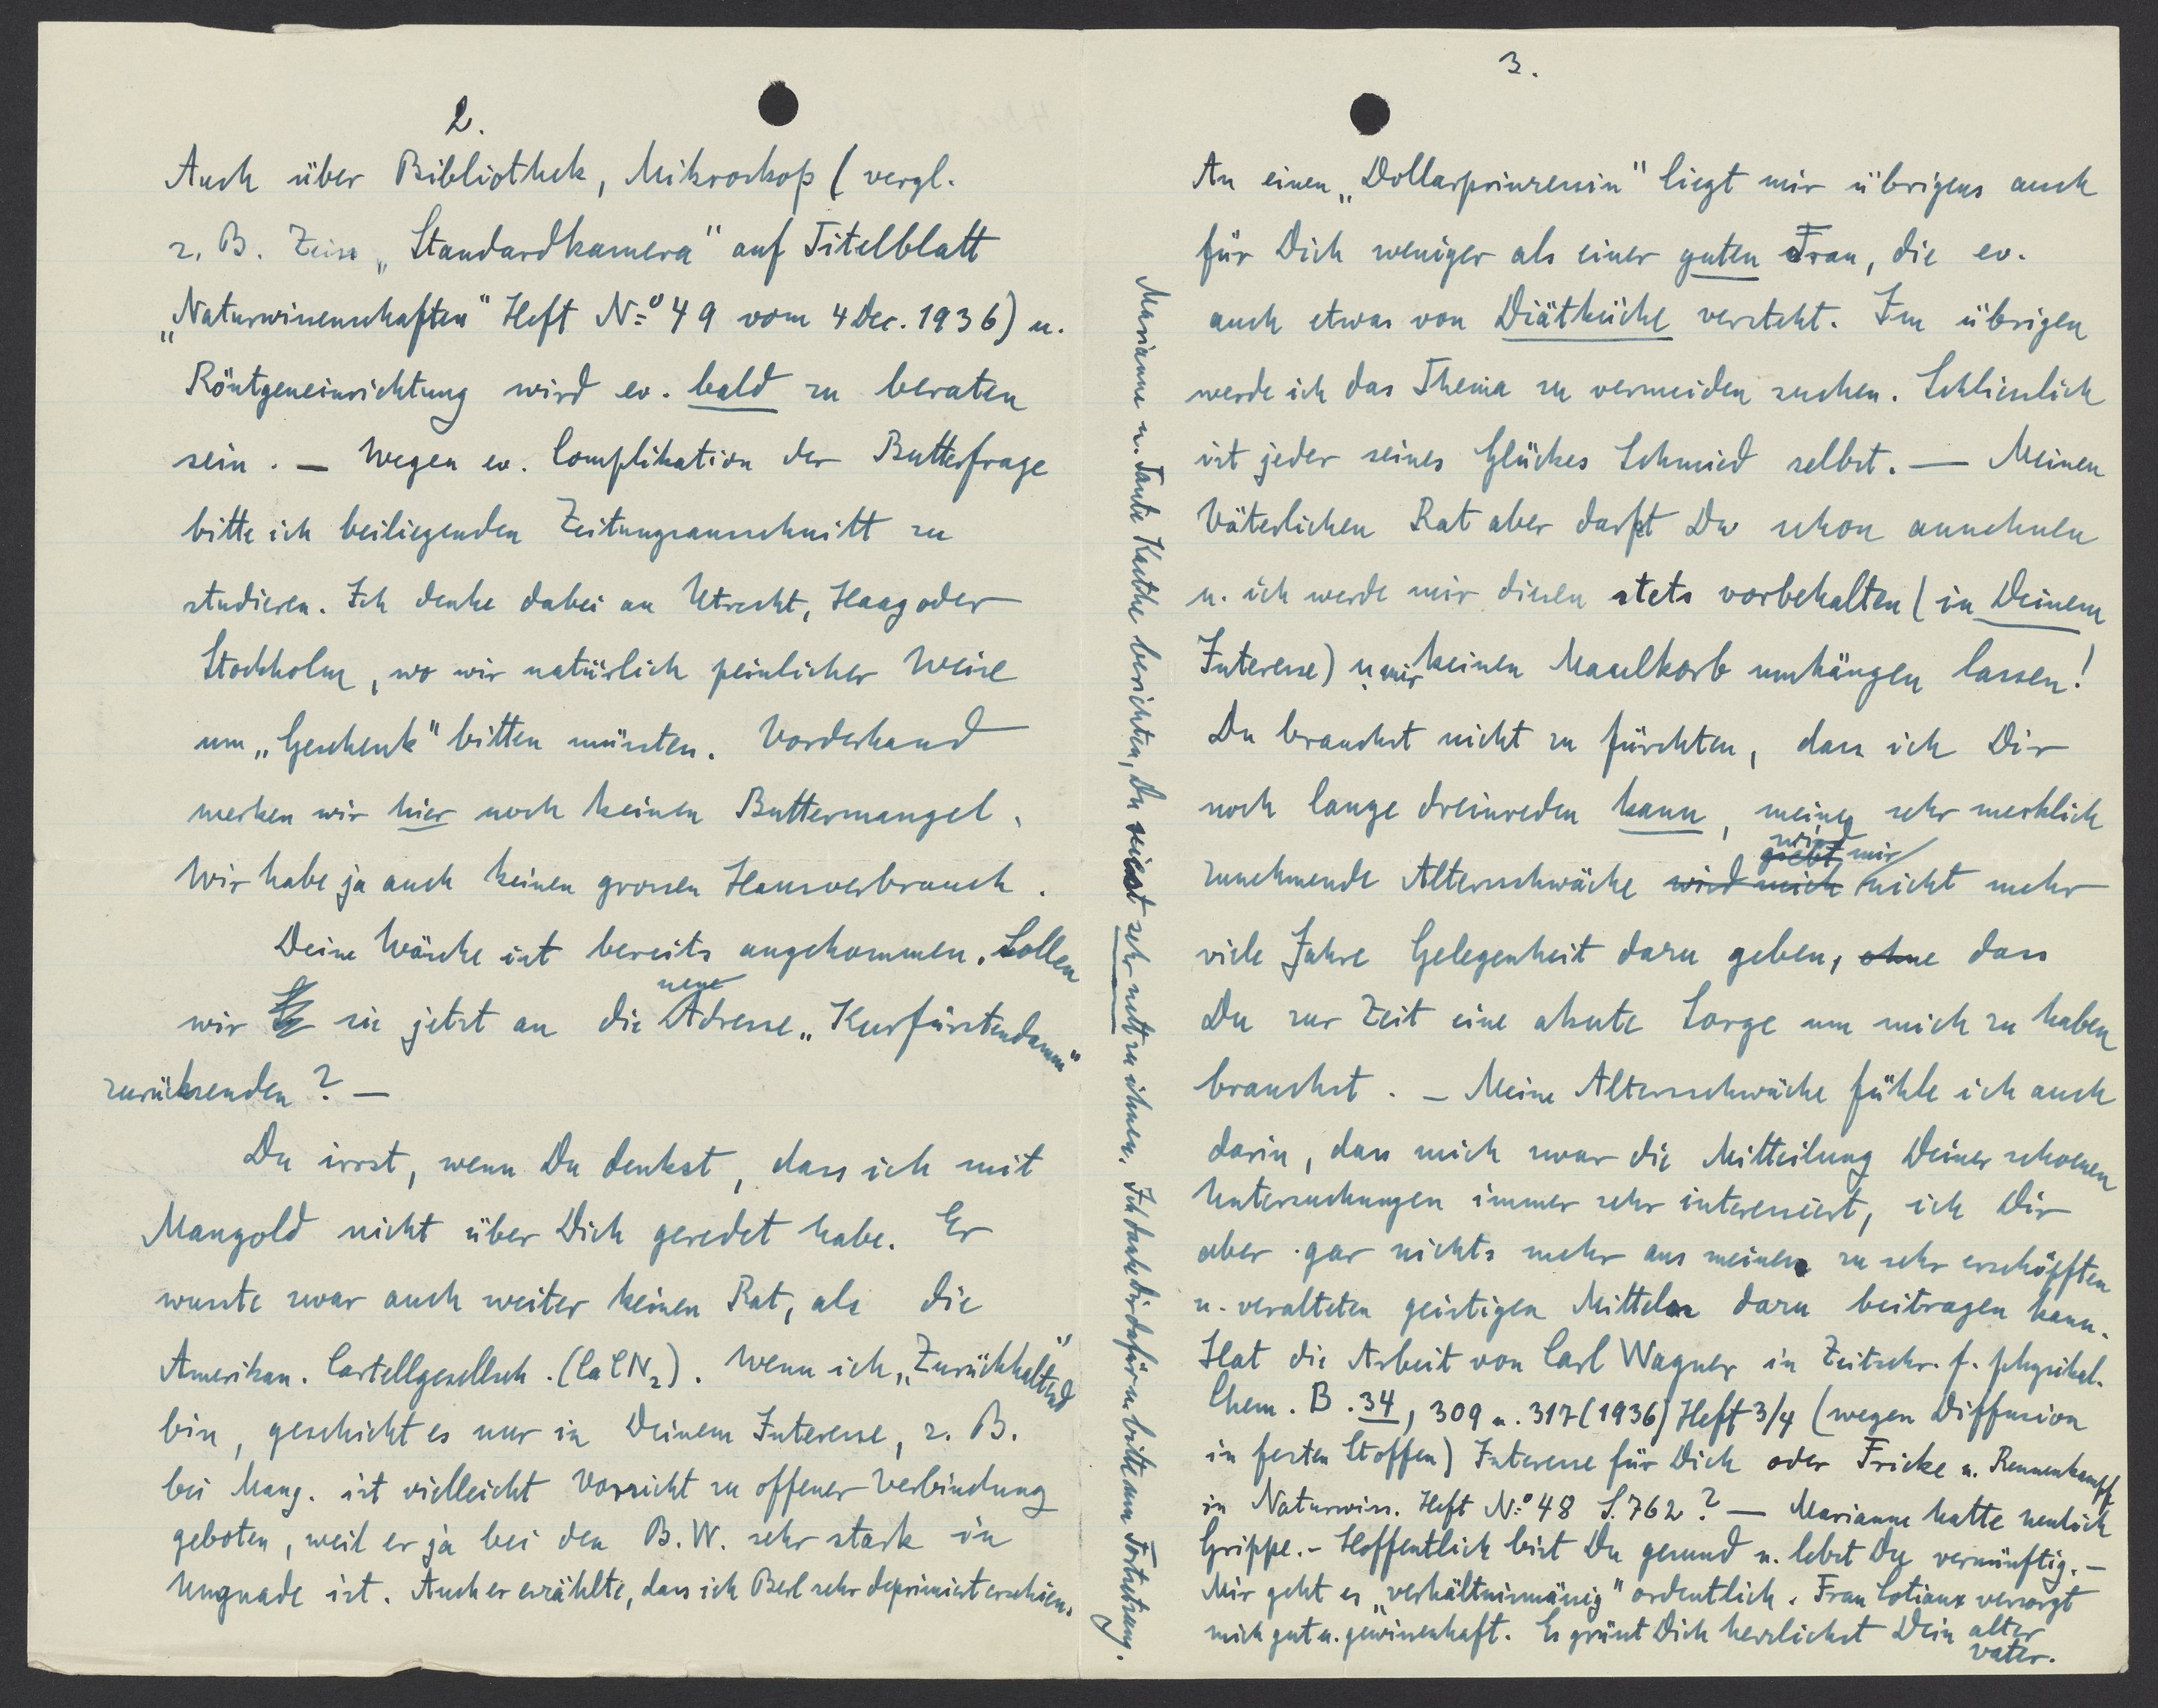 2.
Auch über Bibliothek, Mikroskop (vergl.
z. B. Zeiss „Standardkamera" auf Titelblatt
„Naturwissenschaften" Heft No 49 vom 4 Dec. 1936) u.
Röntgeneinrichtung wird ev. bald zu beraten
sein. — Wegen ev. Complikation der Butterfrage
bitte ich beiliegenden Zeitungsausschnitt zu
studieren. Ich denke dabei an Utrecht, Haag oder
Stockholm, wo wir natürlich peinlicher Weise
um „Geschenk" bitten müssten. Vorderhand
merken wir hier noch keinen Buttermangel.
Wir habe ja auch keinen grossen Hausverbrauch.
Deine Wäsche ist bereits angekommen. Sollen
wir sie jetzt an die neue Adresse „Kurfürstendamm"
zurücksenden? —
Du irrst, wenn Du denkst, dass ich mit
Mangold nicht über Dich geredet habe. Er
wusste zwar auch weiter keinen Rat, als die
Amerikan. Cartellgesellsch. (CaCN2). Wenn ich „Zurückhaltend"
bin, geschieht es nur in Deinem Interesse, z. B.
bei Mang. ist vielleicht Vorsicht zu offener Verbindung
geboten, weil er ja bei den B.W. sehr stark in
Ungnade ist. Auch er erzählte, dass ich Berl sehr deprimiert erschien.
Marianne u. Tante Kaethe berichten, Du seiest sehr nett zu ihnen. Ich danke Dir dafür u. bitte um Fortsetzung.
3.
An einen „Dollarprinzessin" liegt mir übrigens auch
für Dich weniger als einer guten Frau, die ev.
auch etwas von Diätküche versteht. Im übrigen
werde ich das Thema zu vermeiden suchen. Schliesslich
ist jeder seines Glückes Schmied selbst. — Meinen
Väterlichen Rat aber darfst Du schon annehmen
u. ich werde mir diesen stets vorbehalten (in Deinem
Interesse) u. mir keinen Maulkorb umhängen lassen!
Du brauchst nicht zu fürchten, dass ich Dir
noch lange dreinreden kann, meine sehr merklich
zunehmende Altersschwäche wird mich giebt wird mir nicht mehr
viele Jahre Gelegenheit dazu geben, ohne dass
Du zur Zeit eine akute Sorge um mich zu haben
brauchst. — Meine Altersschwäche fühle ich auch
darin, dass mich zwar die Mitteilung Deiner schoenen
Untersuchungen immer sehr interessiert, ich Dir
aber gar nichts mehr aus meinen zu sehr erschöpften
u. veralteten geistigen Mitteln dazu beitragen kann.
Hat die Arbeit von Carl Wagner in Zeitschr. f. physikal.
Chem. B. 34, 309 u. 317 (1936) Heft 3/4 (wegen Diffusion
in festen Stoffen) Interesse für Dich oder Fricke u. Rennenkampf
in Naturwiss. Heft No 48 S. 762? — Marianne hatte neulich
Grippe. - Hoffentlich bist Du gesund u. lebst Du vernünftig. —
Mir geht es „verhältnismässig" ordentlich. Frau Cotiaux versorgt
mich gut u. gewissenhaft. Es grüsst Dich herzlichst Dein alter
Vater.